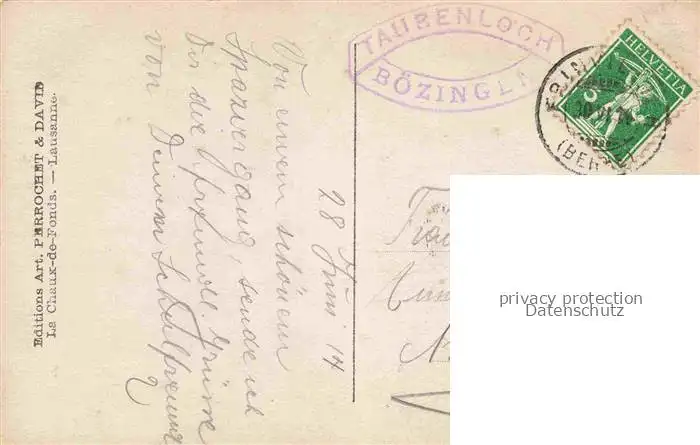 TAUBENLOCH
BÖZINGEN
HELVETIA
5
(BERN)
28 Juni 14
Von einem schönem
Spaziergang, sende ich
Dir die freundl. Grüsse
von Deinem Schulfreund
Editions Art. PERROCHET & DAVID
La Chaux-de-Fonds. — Lausanne.
privacy protection
Datenschutz